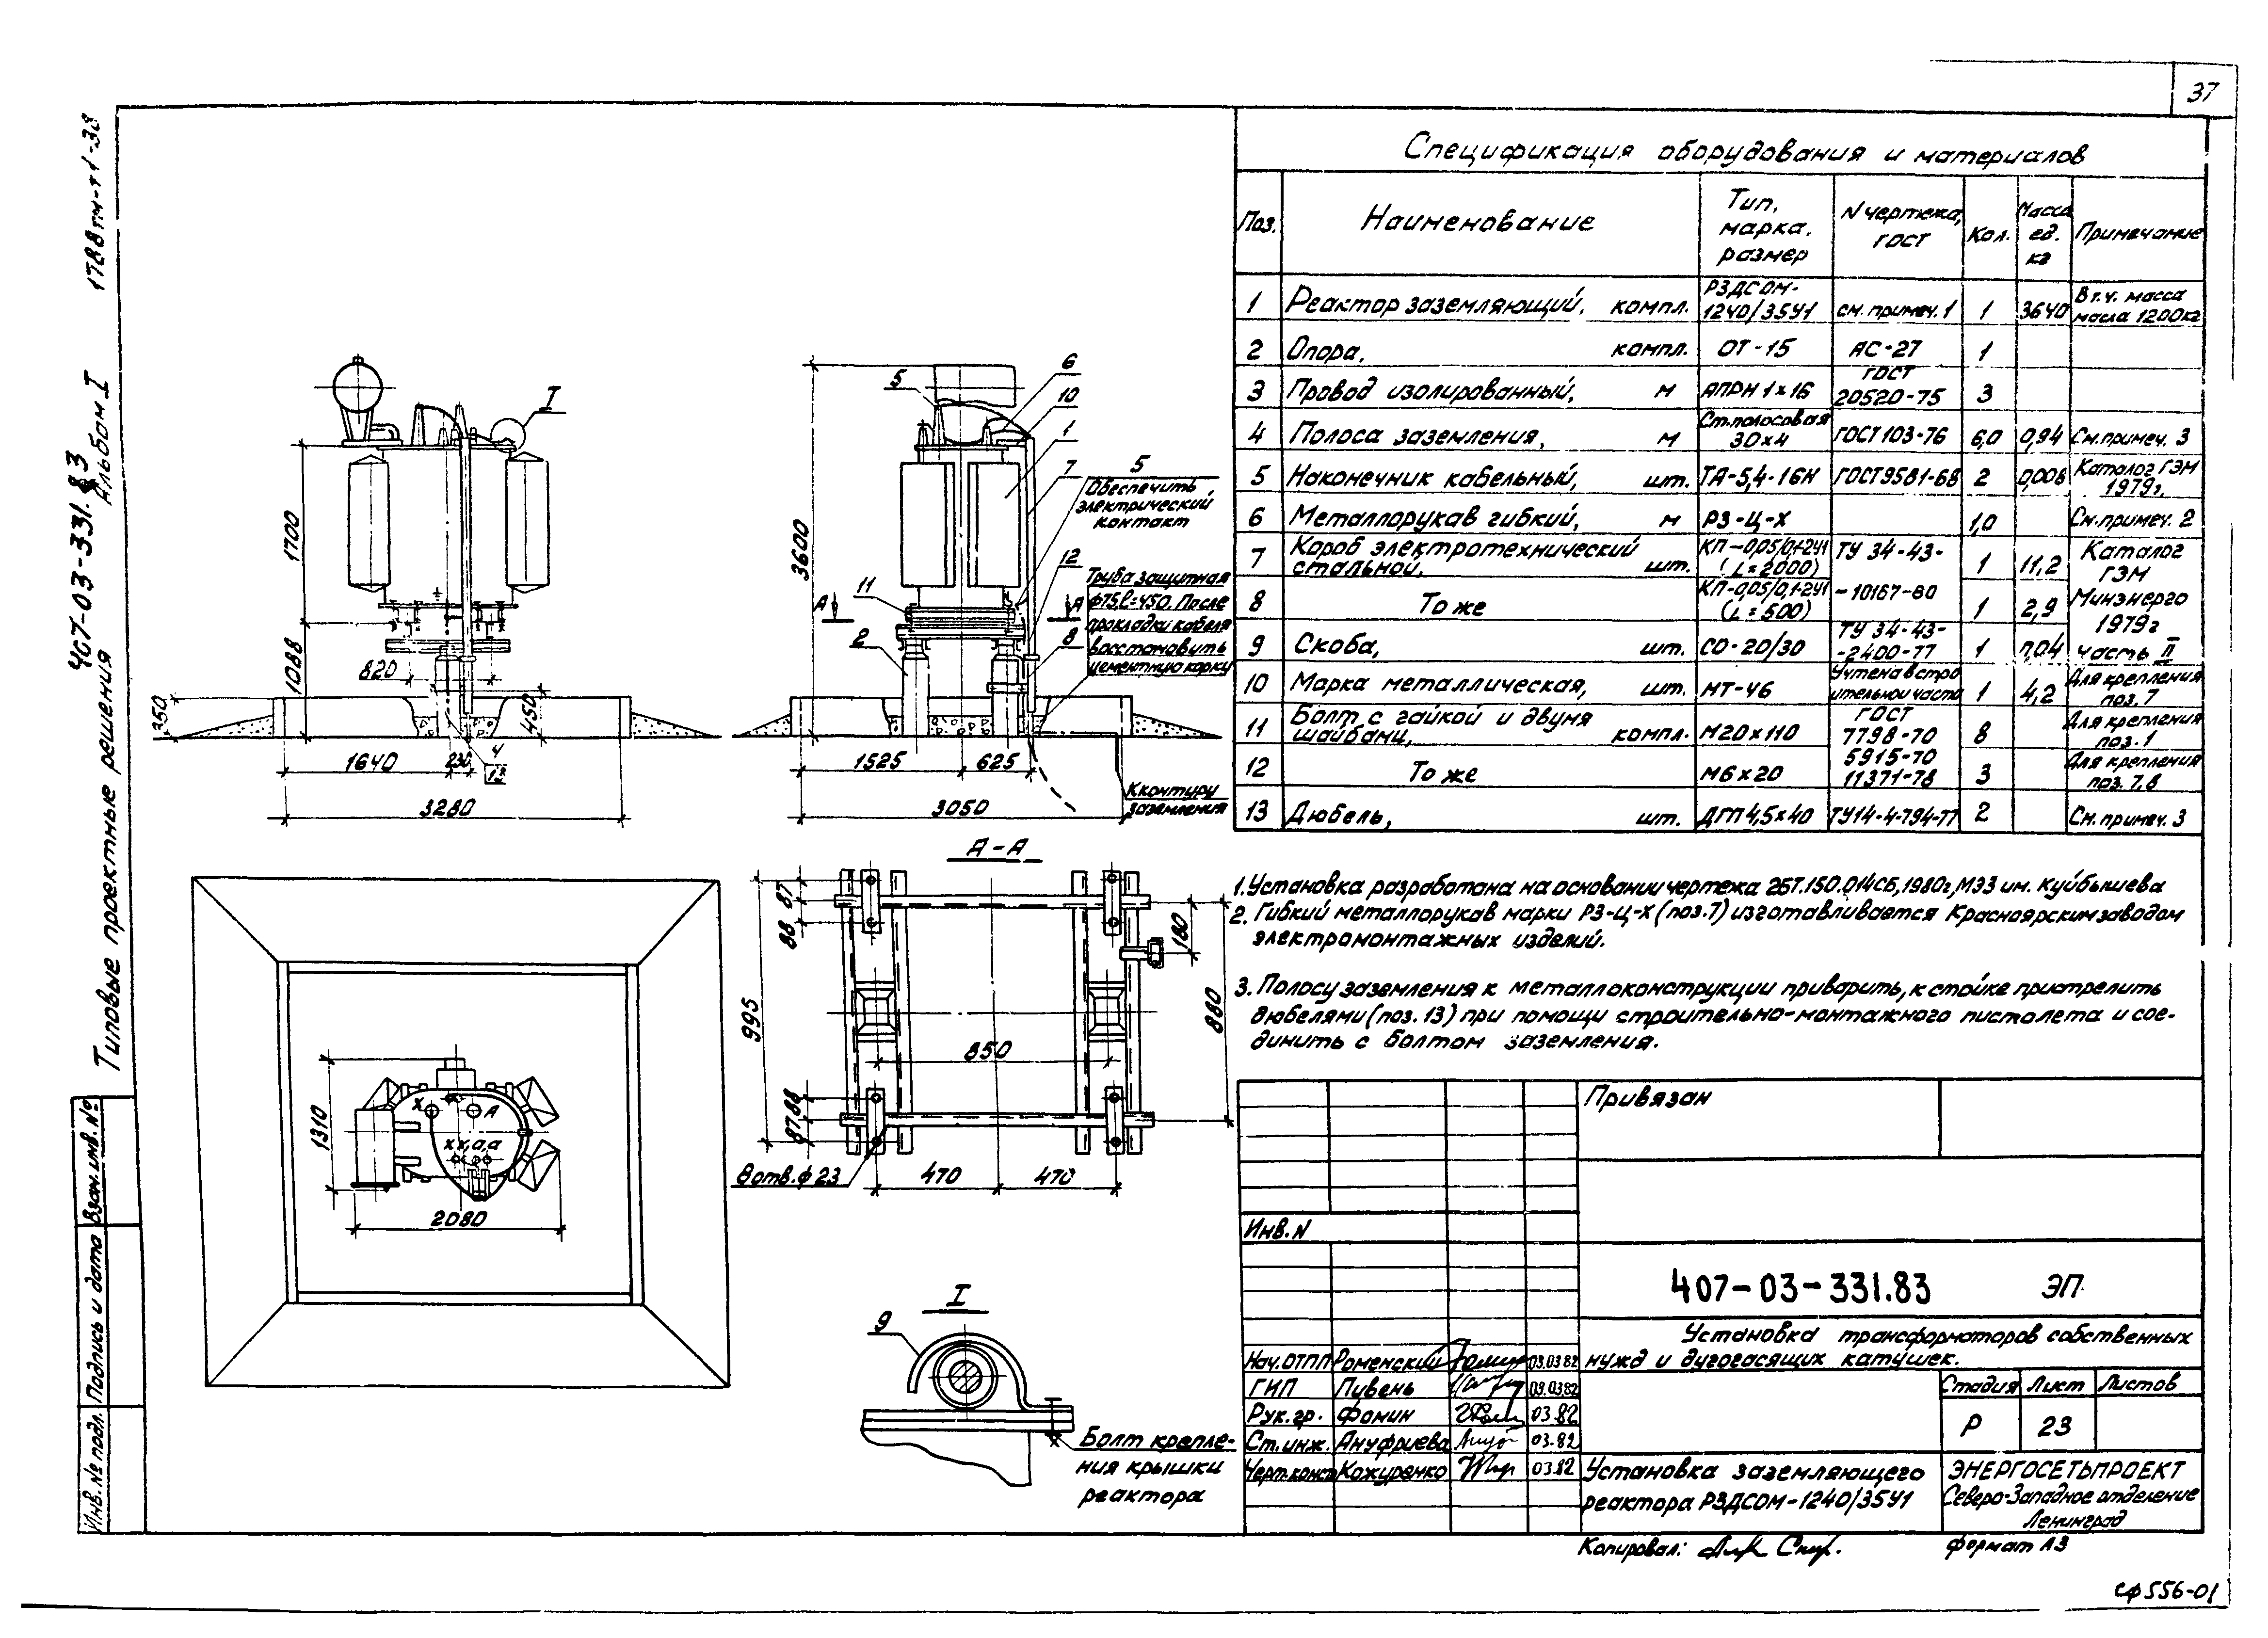 37
Спецификация оборудования и материалов
Поз. Наименование Тип, марка, размер N чертежа, ГОСТ Кол. Масса ед. кг Примечание
1 Реактор заземляющий, компл. РЗДСОМ-1240/35У1 см. примеч. 1 1 3640 В т.ч. масса масла 1200кг
2 Опора, компл. ОТ-15 АС-27 1
3 Провод изолированный, м АПРН 1х16 ГОСТ 20520-75 3
4 Полоса заземления, м Ст.полосовая 30х4 ГОСТ 103-76 6,0 0,94 См.примеч. 3
5 Наконечник кабельный, шт. ТА-5,4-16Н ГОСТ 9581-68 2 0,008 Каталог ГЭМ 1979г.
6 Металлорукав гибкий, м РЗ-Ц-Х 1,0 См.примеч. 2
7 Короб электротехнический стальной, шт. КП-0,05/0,1-2У1 (L=2000) ТУ 34-43- 1 11,2 Каталог ГЭМ
8 То же КП-0,05/0,1-2У1 (L=500) -10167-80 1 2,9 Минэнерго 1979г
9 Скоба, шт. СО-20/30 ТУ 34-43-2400-77 1 0,04 часть II
10 Марка металлическая, шт. МТ-46 Учтена в строительной части 1 4,2 Для крепления поз. 7
11 Болт с гайкой и двумя шайбами, компл. М20х110 ГОСТ 7798-70 8 Для крепления поз. 1
12 То же М6х20 5915-70 11371-78 3 Для крепления поз. 7,8
13 Дюбель, шт. ДГП 4,5х40 ТУ14-4-794-77 2 См. примеч. 3
1. Установка разработана на основании чертежа 2БТ.150.014СБ, 1980г, МЭЗ им. Куйбышева
2. Гибкий металлорукав марки РЗ-Ц-Х (поз.7) изготавливается Красноярским заводом
электромонтажных изделий.
3. Полосу заземления к металлоконструкции приварить, к стойке пристрелить
дюбелями (поз. 13) при помощи строительно-монтажного пистолета и сое-
динить с болтом заземления.
1788тм-т1-38
407-03-331.83
Альбом I
Типовые проектные решения
Взам. инв. №
Подпись и дата
Инв. № подл.
I
1700
1088
820
350
450
4
13
1640
230
3280
5
6
10
1
7
5
Обеспечить
электрический
контакт
12
Труба защитная
ф75, l=450. После
прокладки кабеля
восстановить
цементную корку
3600
11
А
А
2
8
1525
625
3050
К контуру
заземления
А-А
87
88
180
995
880
850
87 88
8 отв. ф 23
470
470
1310
Х
А
х х, а, а
2080
I
9
Болт крепле-
ния крышки
реактора
Привязан
Инв. N
407-03-331.83 ЭП
Установка трансформаторов собственных
нужд и дугогасящих катушек.
Нач. ОТПП Роменский 03.03.82
ГИП Пувень 03.03.82
Рук. гр. Фомин 03.82
Ст. инж. Ануфриева 03.82
Черт. конст Кожуренко 03.82
Стадия Лист Листов
Р 23
Установка заземляющего
реактора РЗДСОМ-1240/35У1
ЭНЕРГОСЕТЬПРОЕКТ
Северо-Западное отделение
Ленинград
Копировал:
Формат А3
сф 556-01